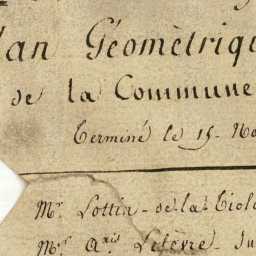 lan Géomètriqu
de la Commune
Terminé le 15 No
Mr. Lottin de la Viol
Mr. Aris Lefèvre